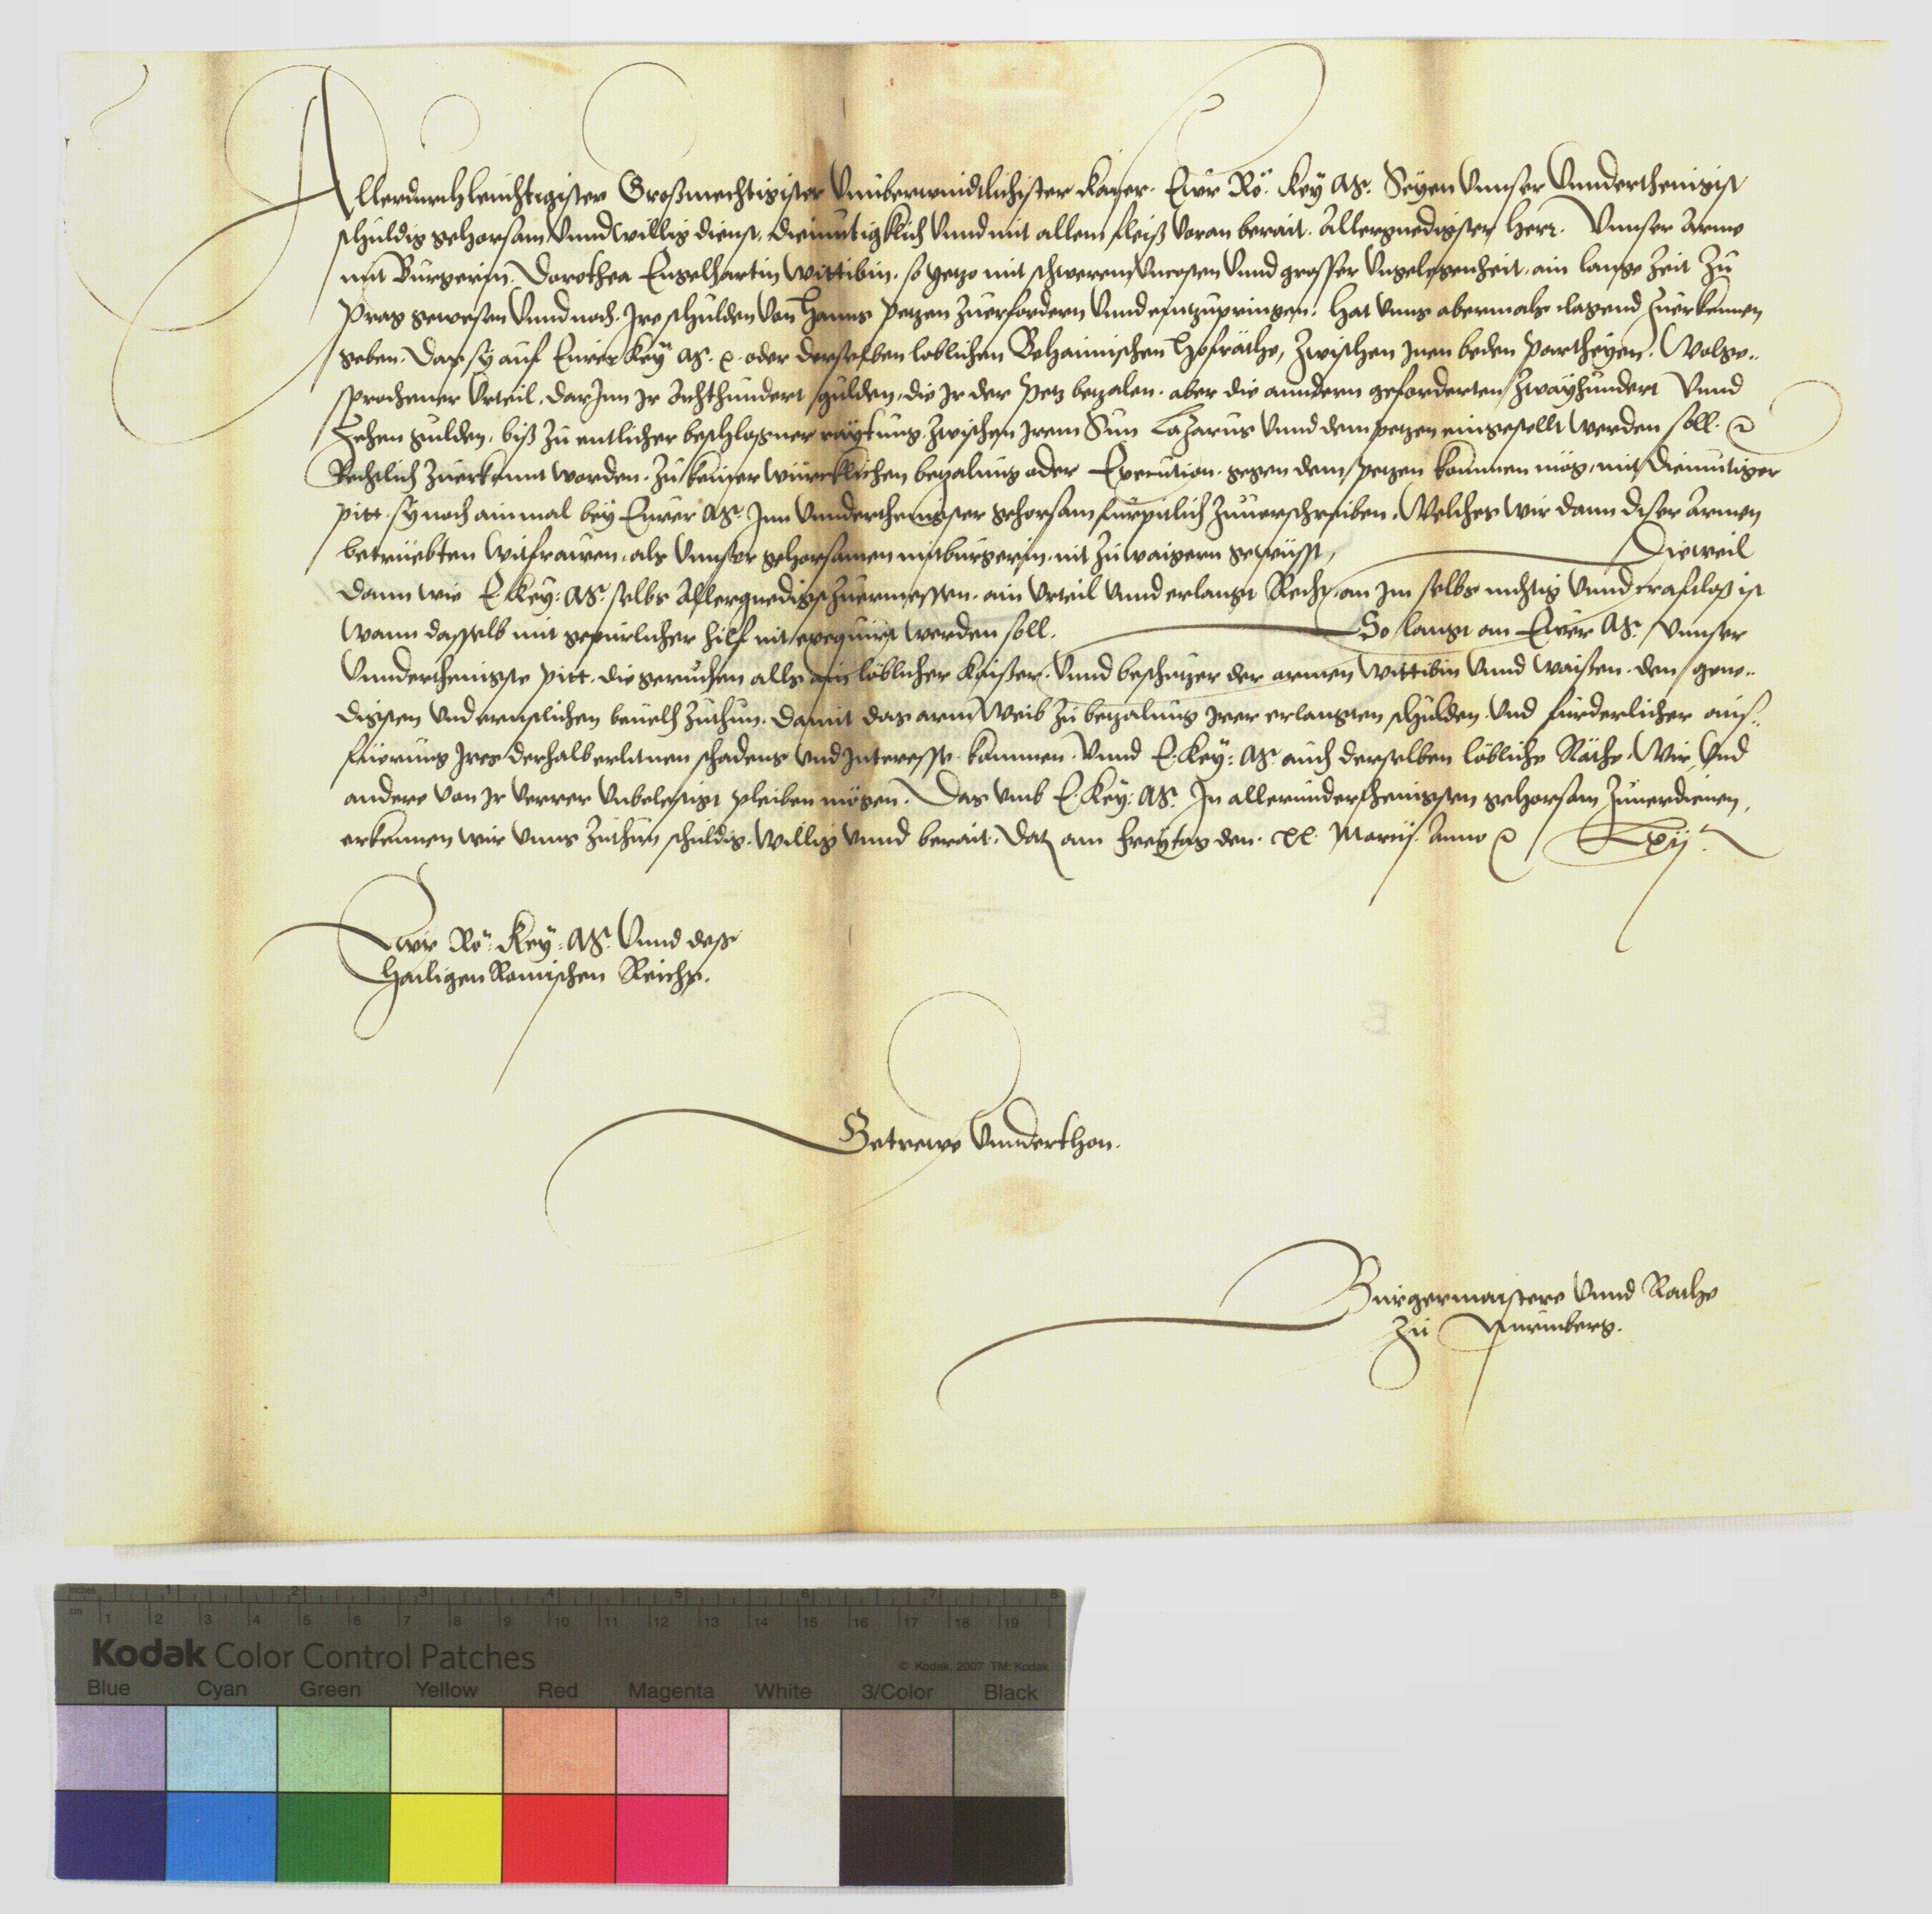 Allerdurchleuchtigister Großmechtigister Vnüberwindtlichister Kayser. Eur Rö. Key Mt. Seyen Vnnser Vnnderthenigist
schuldig gehorsam Vnnd willig dienst, diemütigklich Vnnd mit allem fleiß Voran berait. Allergnedigister Herr. Vnnser Arme
mit Burgerin. Dorothea Engelhartin Wittibin. so yetzo mit schwerem Vncosten Vnnd grosser Vngelegenheit, ain lange Zeit Zu
Prag gewesen Vnnd noch. Jre schulden Von Hanns Petzen Zuerfordern Vnnd eintzupringen, hat Vnns abermals clagend Zuerkennen
geben. Das sy auf Eurer Key Mt. oder derselben loblichen Behaimischen Hofräthe, Zwischen Jnen beden Partheyen. Volge-
sprochener Vrteil. darJnn Jr Achthundert gulden, die Jr der Petz betzalen. aber die anndern geforderten Zwayhundert Vnnd
Zehen gulden, biß Zu entlicher beschlosner raytung, Zwischen Jrem Sun Lazarus Vnnd dem petzen eingestellt werden soll.
Rechtlich Zuerkannt worden. Zu keiner würcklichen betzalung oder Execution. gegen dem petzen kommen mög, mit diemütiger
pitt. sy noch ainmal bey Eurer Mt. Jnn Vnnderthenigster gehorsam fürpitlich Zuuerschreiben. Welches wir dann diser Armen
betrüebten Witfrawen, als Vnnser gehorsamen mitburgerin, nit Zu waigern gewüsst, Dieweil
dann wie E. Key: Mt. selbs Allergnedigist Zuermessen, ain Vrteil Vnnd erlangt Recht, an Jm selbs nichtig Vnnd craftloß ist
Wann dasselb mit gepürlicher hilf nit exequirt werden soll. So langt an Eur Mt. Vnnser
Vnnderthenigste pitt. die geruhen alls ain löblicher Kaiser, Vnnd beschutzer der armen Wittibin Vnnd Waisen. den gene-
digsten Vnd ernstlichen beuelh Zuthun. Damit das arm Weib Zu betzalung Jrer erlangten schulden. Vnd fürderlicher auß-
fuerung Jres derhalb erlitnen schadens Vnd Jnteresse. kommen. Vnnd E. Key: Mt. auch derselben löbliche Räthe. Wir, Vnd
andere Von Jr Verrer Vnbelestigt pleiben mögen. Das Vmb E. Key: Mt. Jn allerunderthenigsten gehorsam Zuuerdienen,
erkennen wir Vnns Zuthun schuldig. Willig Vnnd berait. Dat am Freytag den. XX. Marcij. Anno Lxij.
Eur Rö: Key: Mt. Vnnd deß
Hailigen Romischen Reichs.
Getrewe Vnnderthon.
Burgermaistere Vnnd Rathe
Zu Nurmberg.
inches 1 2 3 4 5 6 7 8
cm 1 2 3 4 5 6 7 8 9 10 11 12 13 14 15 16 17 18 19
Kodak Color Control Patches
© Kodak, 2007 TM: Kodak
Blue Cyan Green Yellow Red Magenta White 3/Color Black